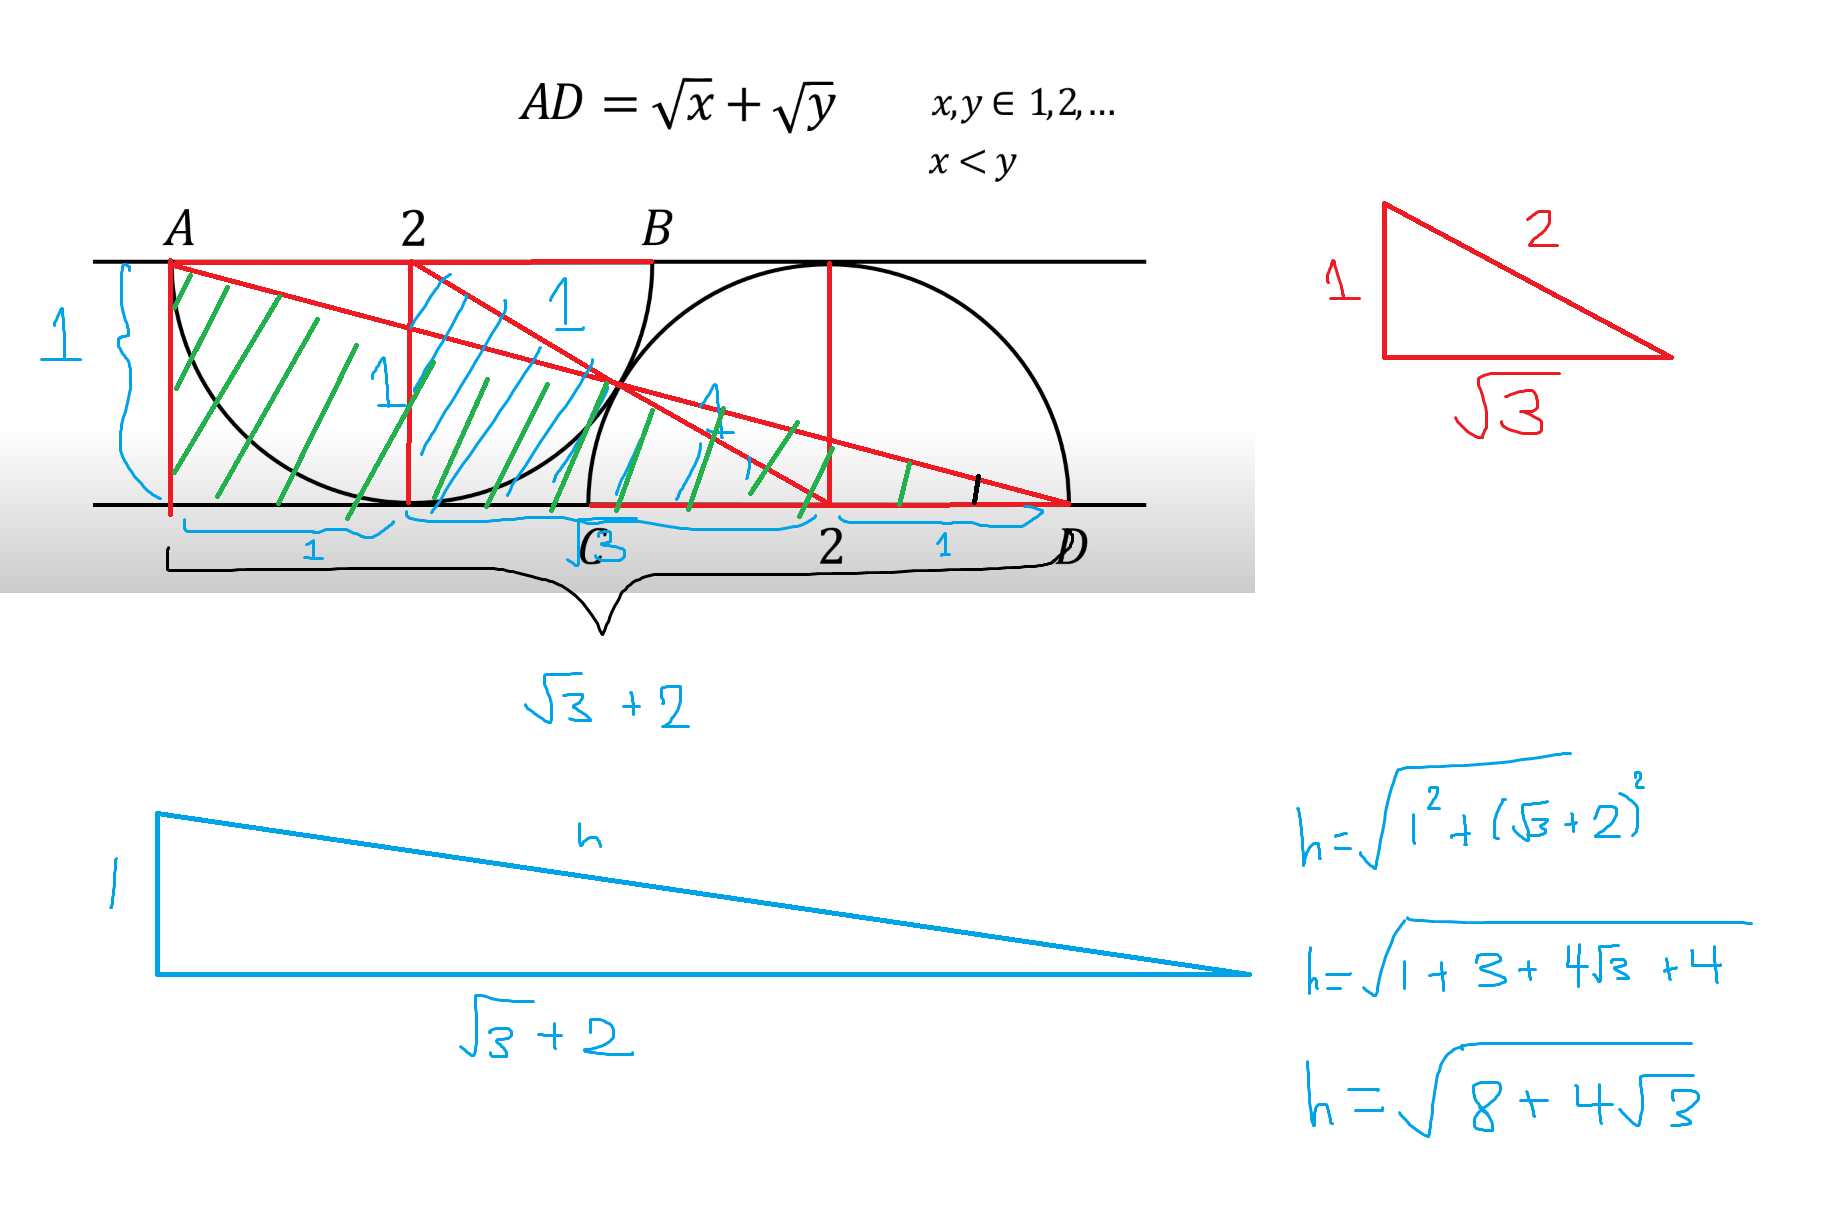 AD = √x + √y
x, y ∈ 1,2,...
x < y
A 2 B
1
1
1
1
1
√3
1
C 2 D
√3 + 2
1
2
√3
1
h
√3 + 2
h = √(1² + (√3 + 2)²)
h = √(1 + 3 + 4√3 + 4)
h = √(8 + 4√3)